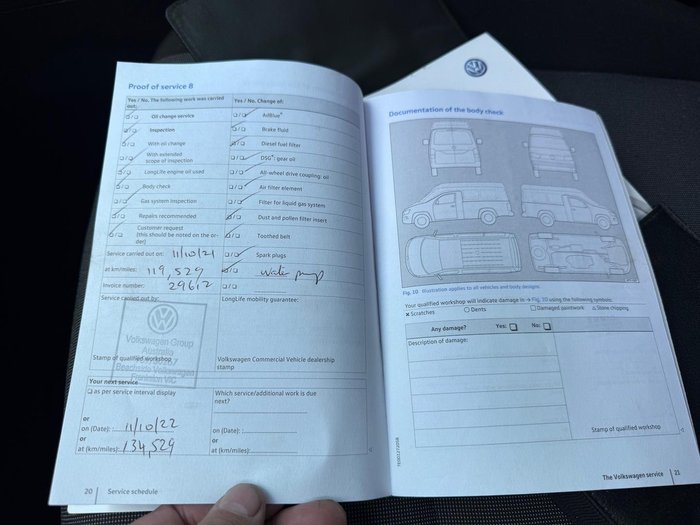 Proof of service 8
Yes / No. The following work was carried out:
Yes / No. Change of:
Oil change service
AdBlue®
Inspection
Brake fluid
With oil change
Diesel fuel filter
With extended scope of inspection
DSG®: gear oil
LongLife engine oil used
All-wheel drive coupling: oil
Body check
Air filter element
Gas system inspection
Filter for liquid gas system
Repairs recommended
Dust and pollen filter insert
Customer request
(this should be noted on the or-
der)
Toothed belt
Service carried out on: 11/10/21
Spark plugs
at km/miles: 119,529
water pump
Invoice number: 29612
Service carried out by:
LongLife mobility guarantee:
Volkswagen Group
Australia
Volkswagen
Frankston VIC
Stamp of qualified workshop
Volkswagen Commercial Vehicle dealership
stamp
Your next service
as per service interval display
Which service/additional work is due
next?
or
on (Date): 11/10/22
on (Date):
or
or
at (km/miles): 134,529
at (km/miles):
20 | Service schedule
Documentation of the body check
Fig. 10 Illustration applies to all vehicles and body designs.
Your qualified workshop will indicate damage in → Fig. 10 using the following symbols:
x Scratches
○ Dents
□ Damaged paintwork
△ Stone chipping
Any damage?
Yes:
No:
Description of damage:
Stamp of qualified workshop
The Volkswagen service | 21